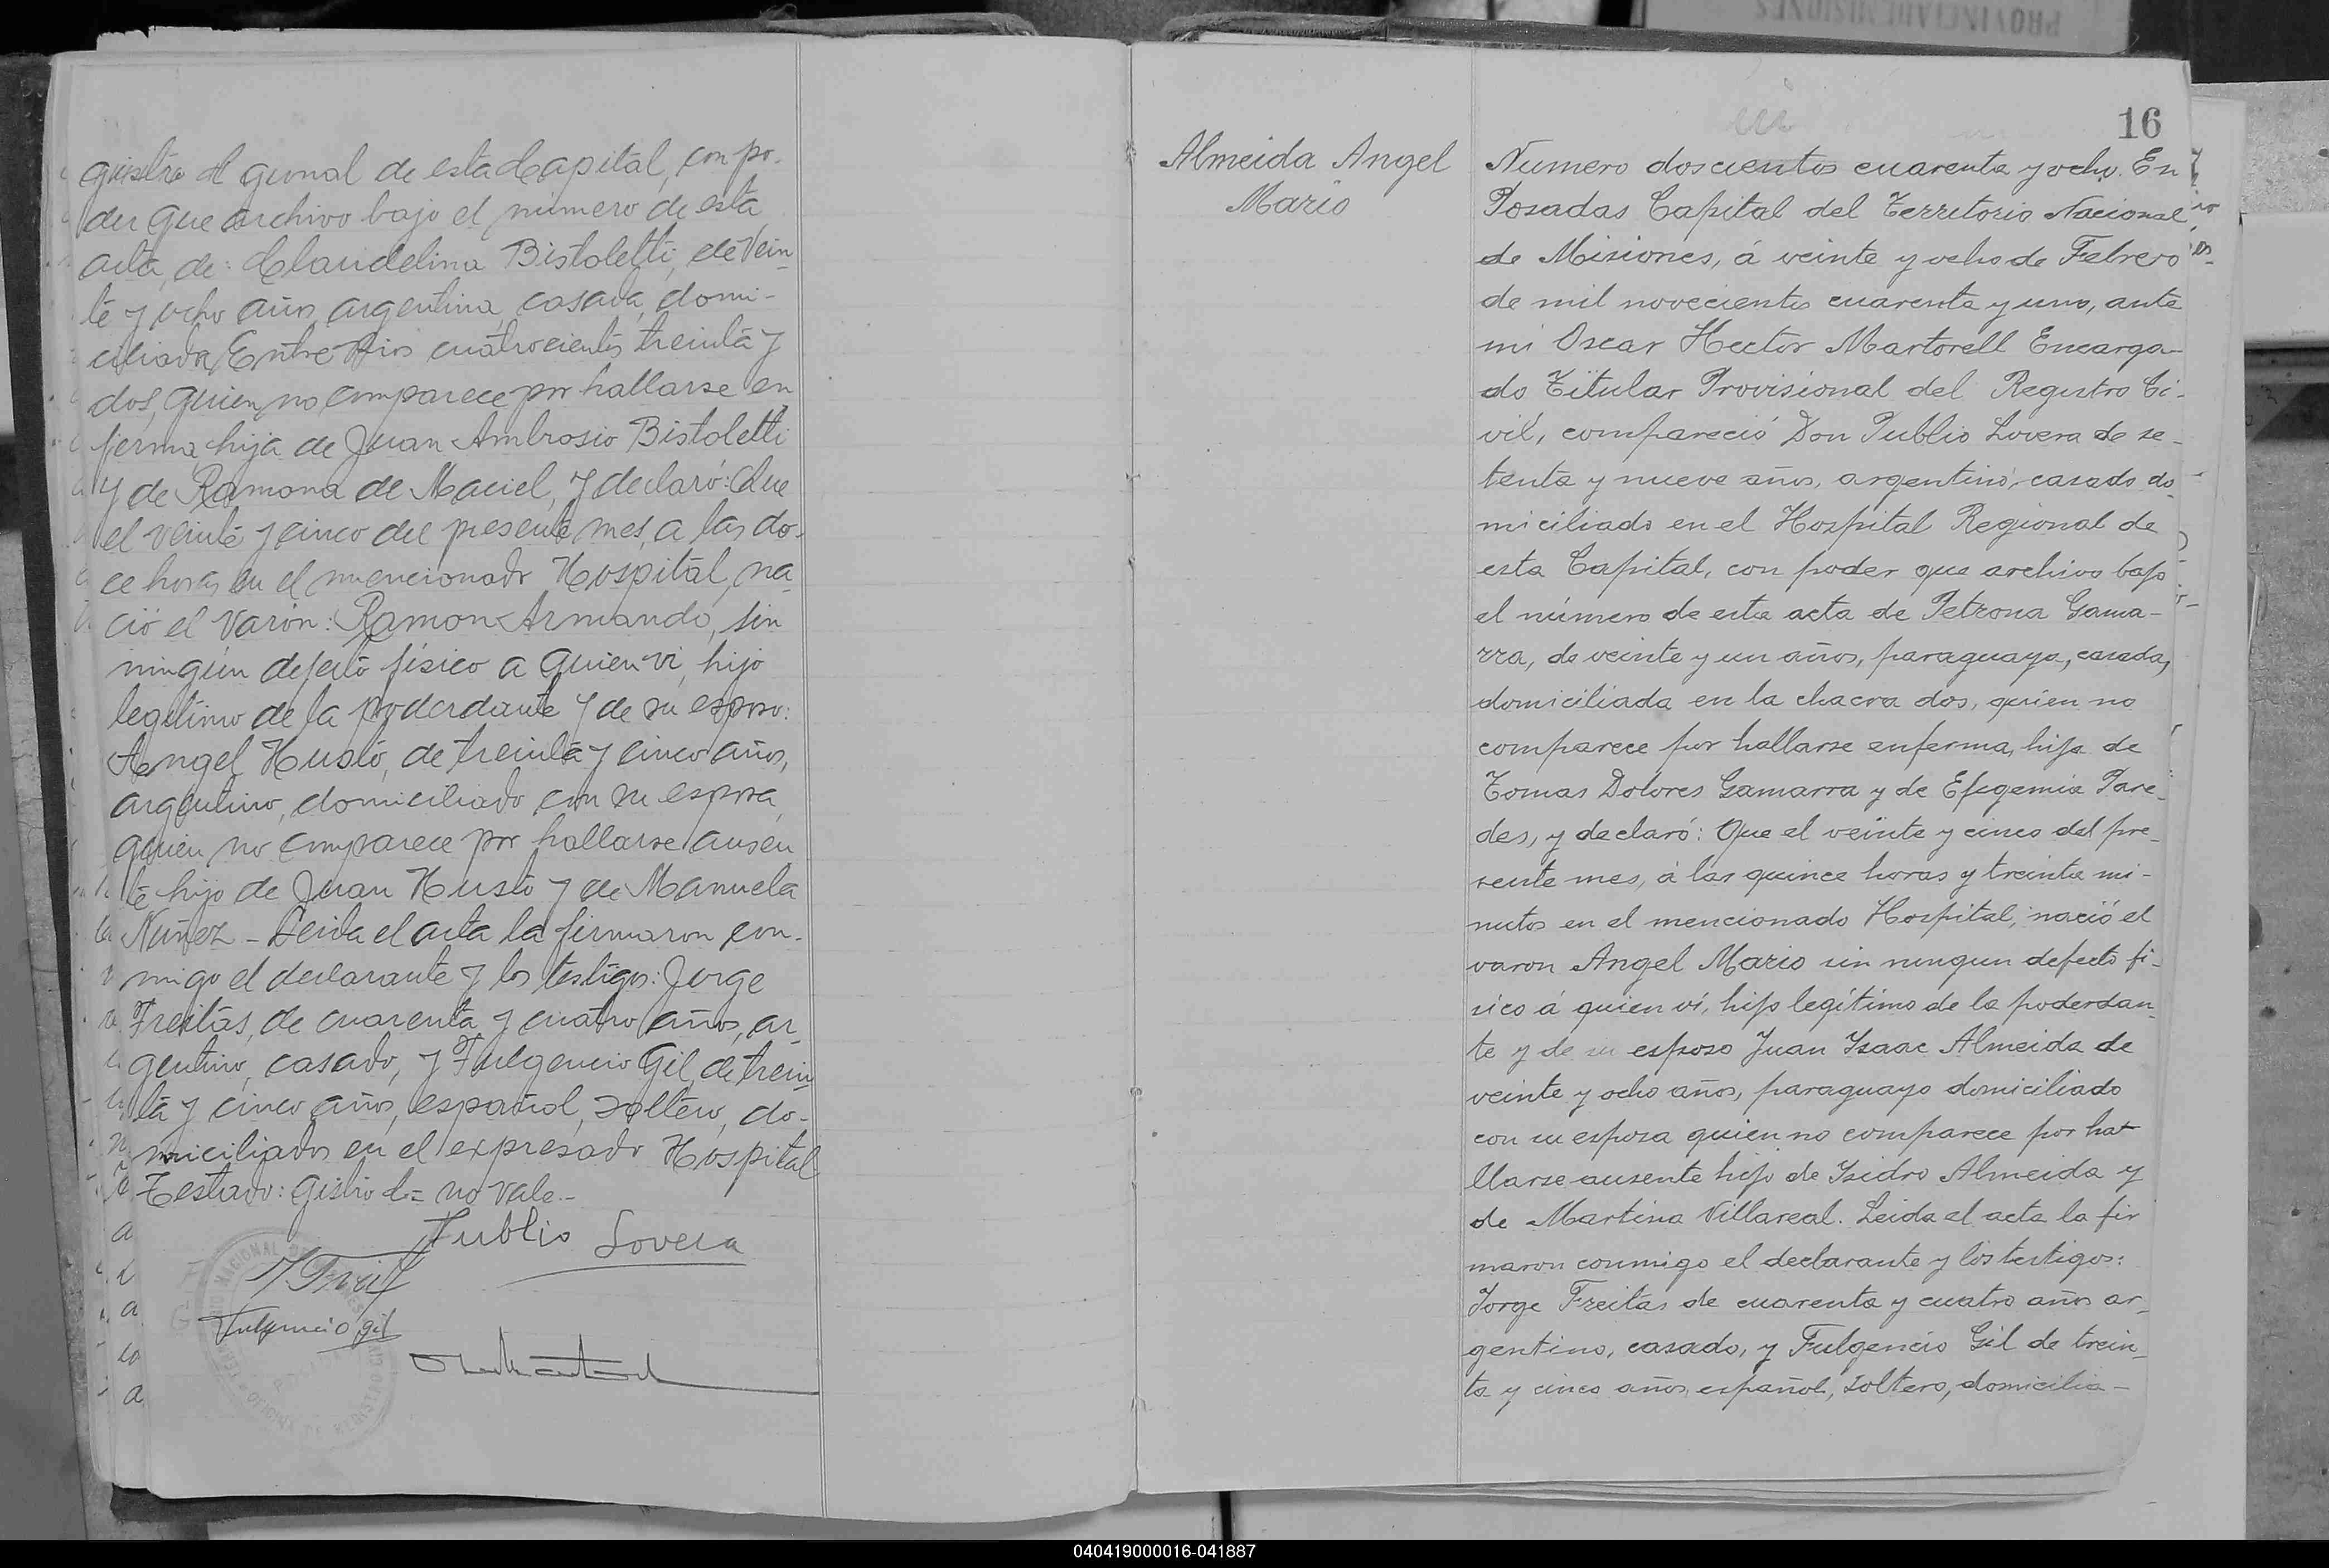 gistro del gional de esta Capital, con po-
der que archivo bajo el número de esta
acta, de: Claudelina Bistoletti, de vein-
te y ocho años, argentina, casada, domi-
ciliada Entre Rios cuatrocientos treinta y
dos, quien no comparece por hallarse en
ferma, hija de Juan Ambrosio Bistoletti
y de Ramona de Maciel, y declaró: Que
el veinte y cinco del presente mes, a las do-
ce horas en el mencionado Hospital, na-
ció el varón: Ramon Armando, sin
ningún defecto físico a quien vi, hijo
legítimo de la poderdante y de su esposo:
Angel Husto, de treinta y cinco años,
argentino, domiciliado con su esposa,
quien no comparece por hallarse ausen
te hijo de Juan Husto y de Manuela
Nuñez - Leida el acta la firmaron con-
migo el declarante y los testigos: Jorge
Freitas, de cuarenta y cuatro años, ar-
gentino, casado, y Fulgencio Gil, de trein-
ta y cinco años, español, soltero, do-
miciliados en el expresado Hospital
Testado: gistro d= no vale.-
Publio Lovera
Fulgencio Gil
PROVINCIA DE MISIONES
16
Almeida Angel
Mario
Numero doscientos cuarenta y ocho. En
Posadas Capital del Territorio Nacional
de Misiones, á veinte y ocho de Febrero
de mil novecientos cuarenta y uno, ante
mi Oscar Hector Martorell Encarga-
do Titular Provisional del Registro Ci-
vil, compareció Don Publio Lovera de se-
tenta y nueve años, argentino, casado do-
miciliado en el Hospital Regional de
esta Capital, con poder que archivo bajo
el número de esta acta de Petrona Gama-
rra, de veinte y un años, paraguaya, casada,
domiciliada en la chacra dos, quien no
comparece por hallarse enferma, hija de
Tomas Dolores Gamarra y de Efigemia Pare-
des, y declaró: Que el veinte y cinco del pre-
sente mes, á las quince horas y treinta mi-
nutos en el mencionado Hospital, nació el
varon Angel Mario sin ningun defecto fi-
sico á quien ví, hijo legítimo de la poderdan-
te y de su esposo Juan Isaac Almeida de
veinte y ocho años, paraguayo domiciliado
con su esposa quien no comparece por ha-
llarse ausente hijo de Isidro Almeida y
de Martina Villareal. Leida el acta la fir
maron conmigo el declarante y los testigos:
Jorge Freitas de cuarenta y cuatro años ar-
gentino, casado, y Fulgencio Gil de trein-
ta y cinco años, español, soltero, domicilia-
040419000016-041887